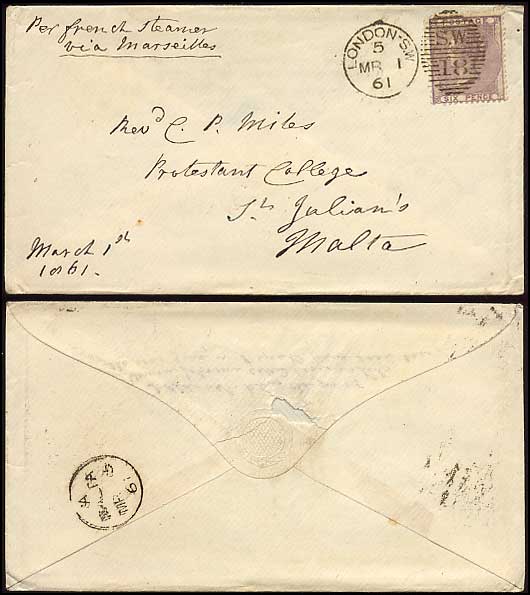 Per french steamer
via Marseilles
LONDON-S.W
5
MR 1
61
S.W
18
POSTAGE
SIX PENCE
Revd C. P. Miles
Protestant College
St. Julian's
Malta
March 1st
1861.
MALTA
MR 6
61